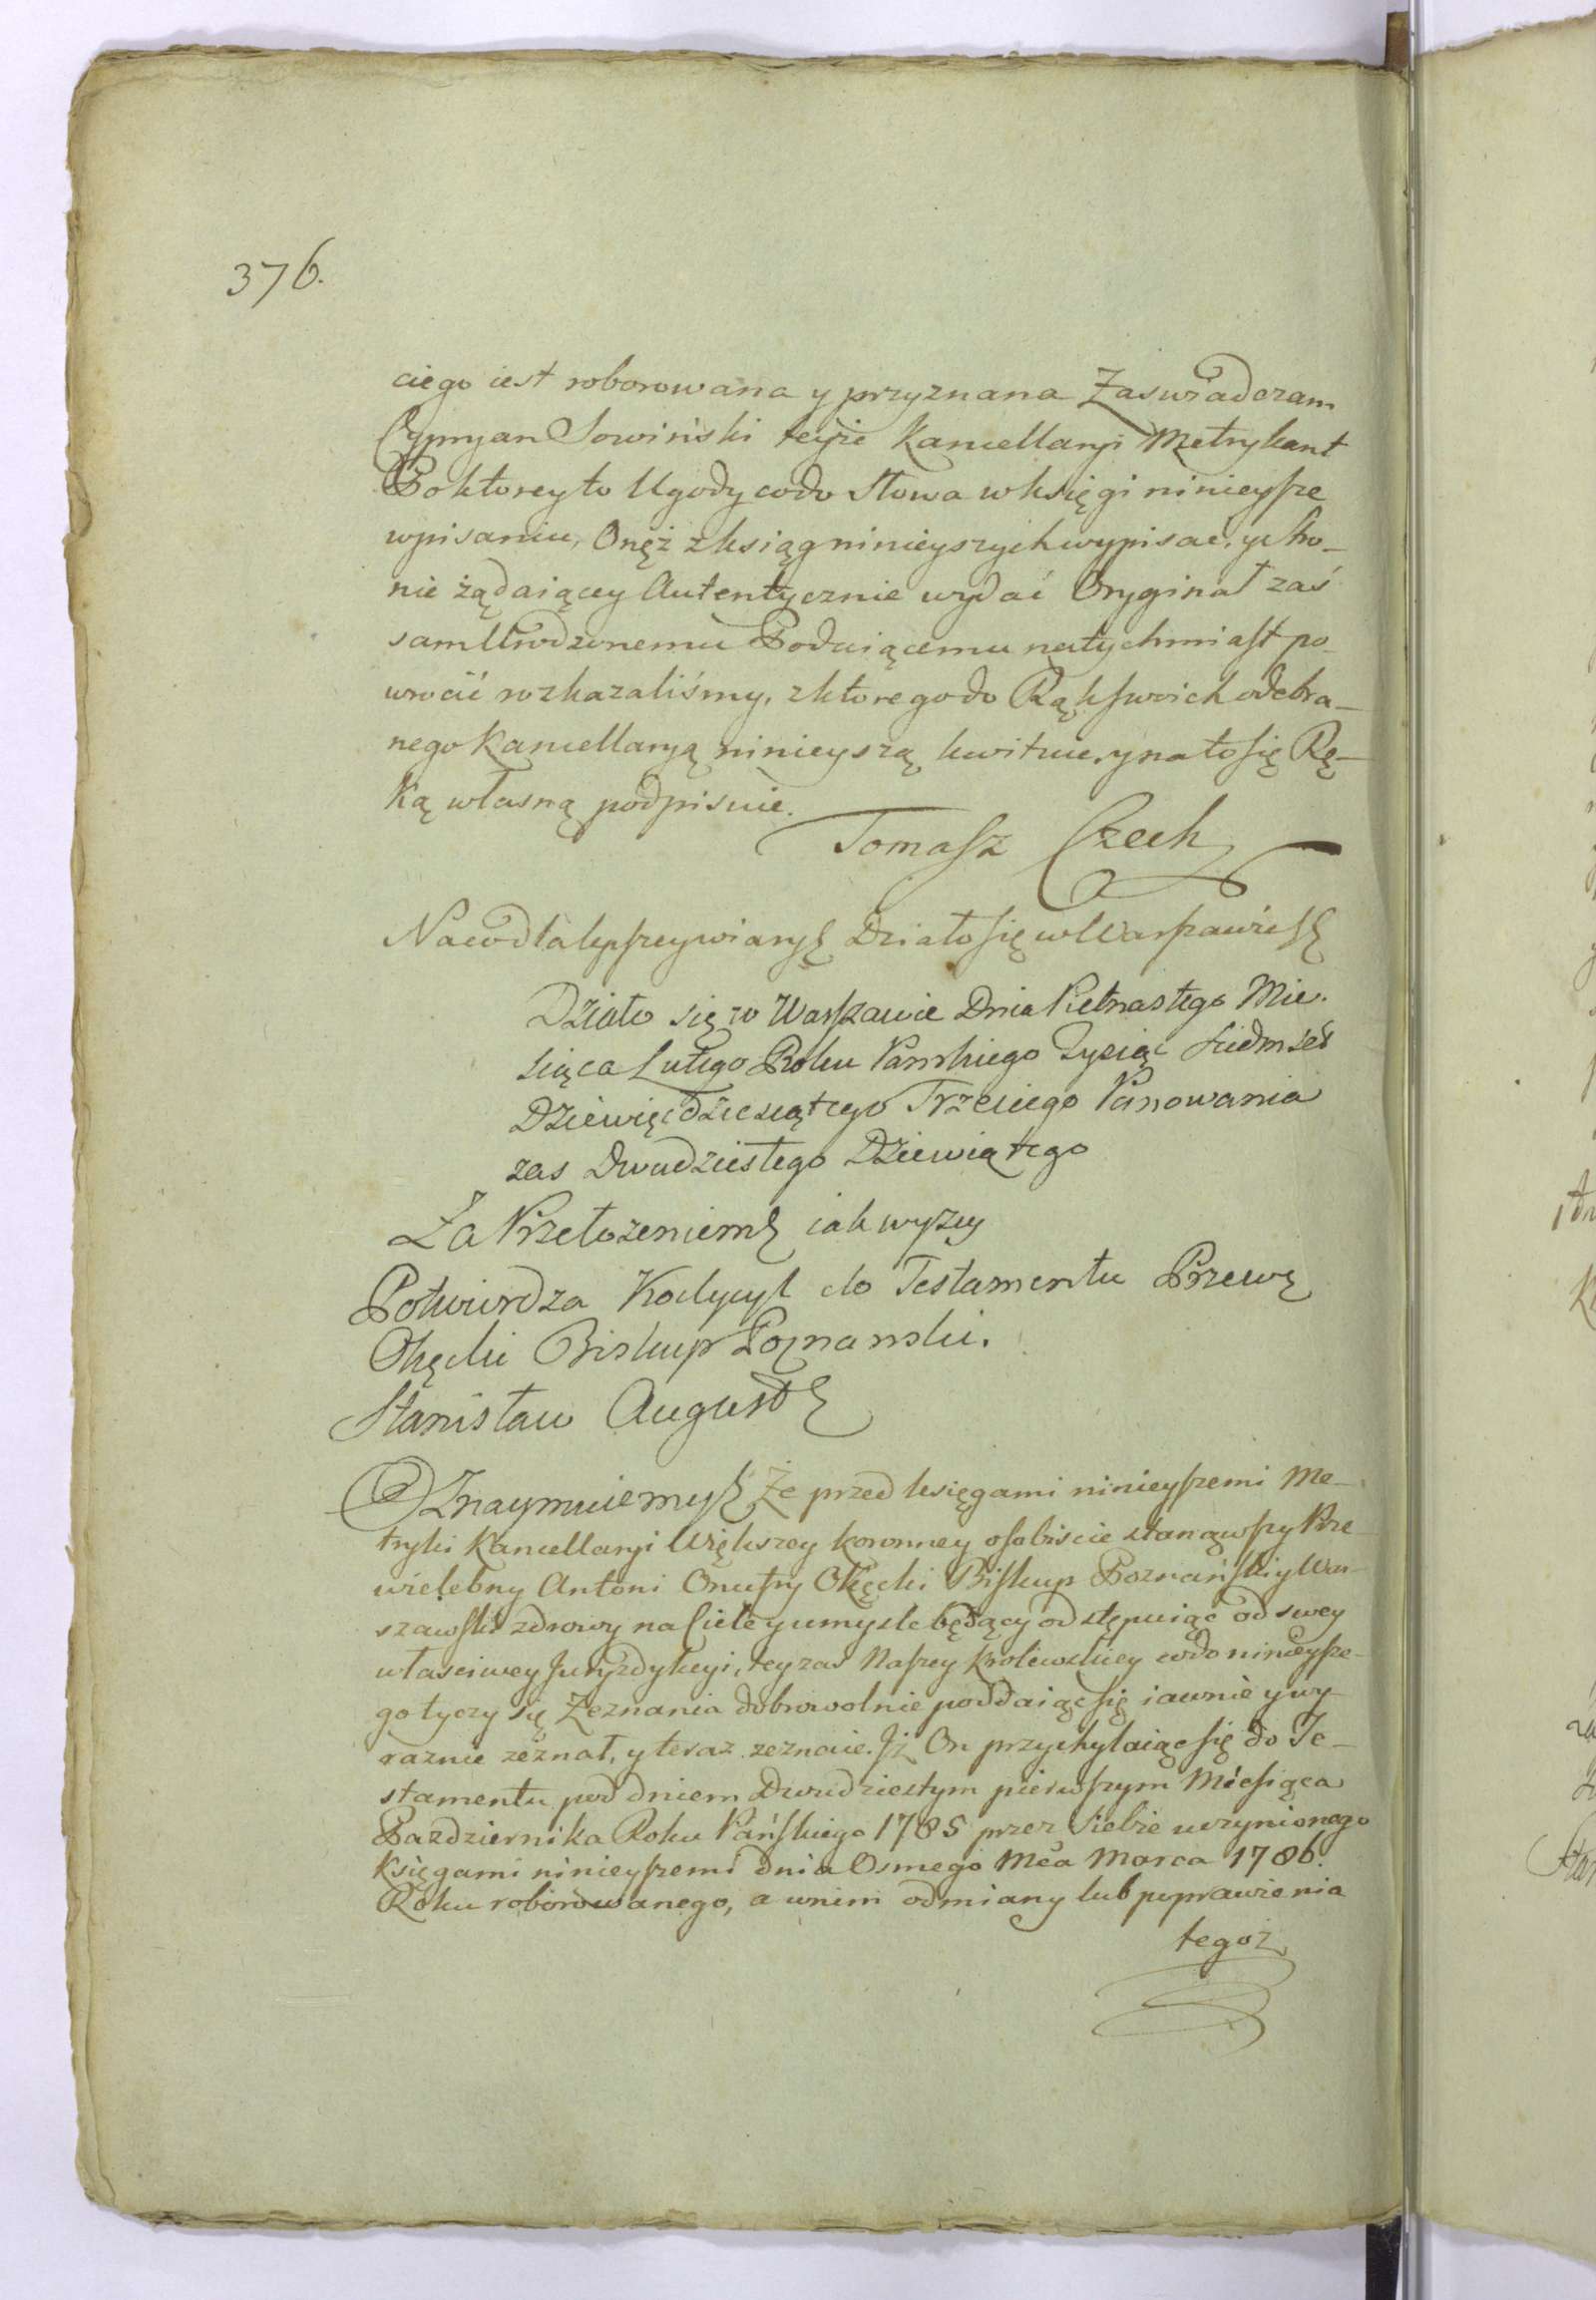 376.
ciego iest roborowana y przyznana Zaswiadczam
Cypryan Sowiński teyże Kancellaryi Metrykant
Po ktorey to Ugody co do Słowa w księgi ninieysze
wpisaniu, Onęż z ksiąg ninieyszych wypisać, y stro-
nie żądaiącey Autentycznie wydać Oryginał zaś
sam Urodzonemu Podaiącemu natychmiast po-
wrocić rozkazaliśmy, z ktorego do Rąk swoich odebra-
nego Kancellaryą ninieyszą kwituie, y na to się Rę-
ką własną podpisuie.
Tomasz Czech
Na co dla lepszey wiary Działo się w Warszawie
Działo się w Warszawie Dnia Pietnastego Mie-
siąca Lutego Roku Panskiego Tysiąc Siedmset
Dziewięcdziesiątego Trzeciego Panowania
zas Dwudziestego Dziewiątego
Za Przełozeniem iak wyzey
Potwierdza Kodycyl do Testamentu Przew
Okęcki Biskup Poznanski.
Stanisław August
Oznaymuiemy Że przed księgami ninieyszemi Me-
tryki Kancellaryi Większey koronney osobiscie stanąwszy Prze-
wielebny Antoni Onufry Okęcki Biskup Poznański y War-
szawski zdrowy na Ciele y umysle będący odstępuiąc od swey
własciwey Juryzdykcyi, tey zas Naszey Krolewskiey co do ninieysze-
go tyczy się Zeznania dobrowolnie poddaiąc się iawnie y wy-
raznie zeznał, y teraz zeznaie. Iż On przychylaiąc się do Te-
stamentu pod dniem Dwudziestym pierwszym Miesiąca
Pazdziernika Roku Pańskiego 1785 przez Siebie uczynionego
Księgami ninieyszemi dnia Osmego Mca Marca 1786.
Roku roborowanego, a w nim odmiany lub poprawienia
tegoz